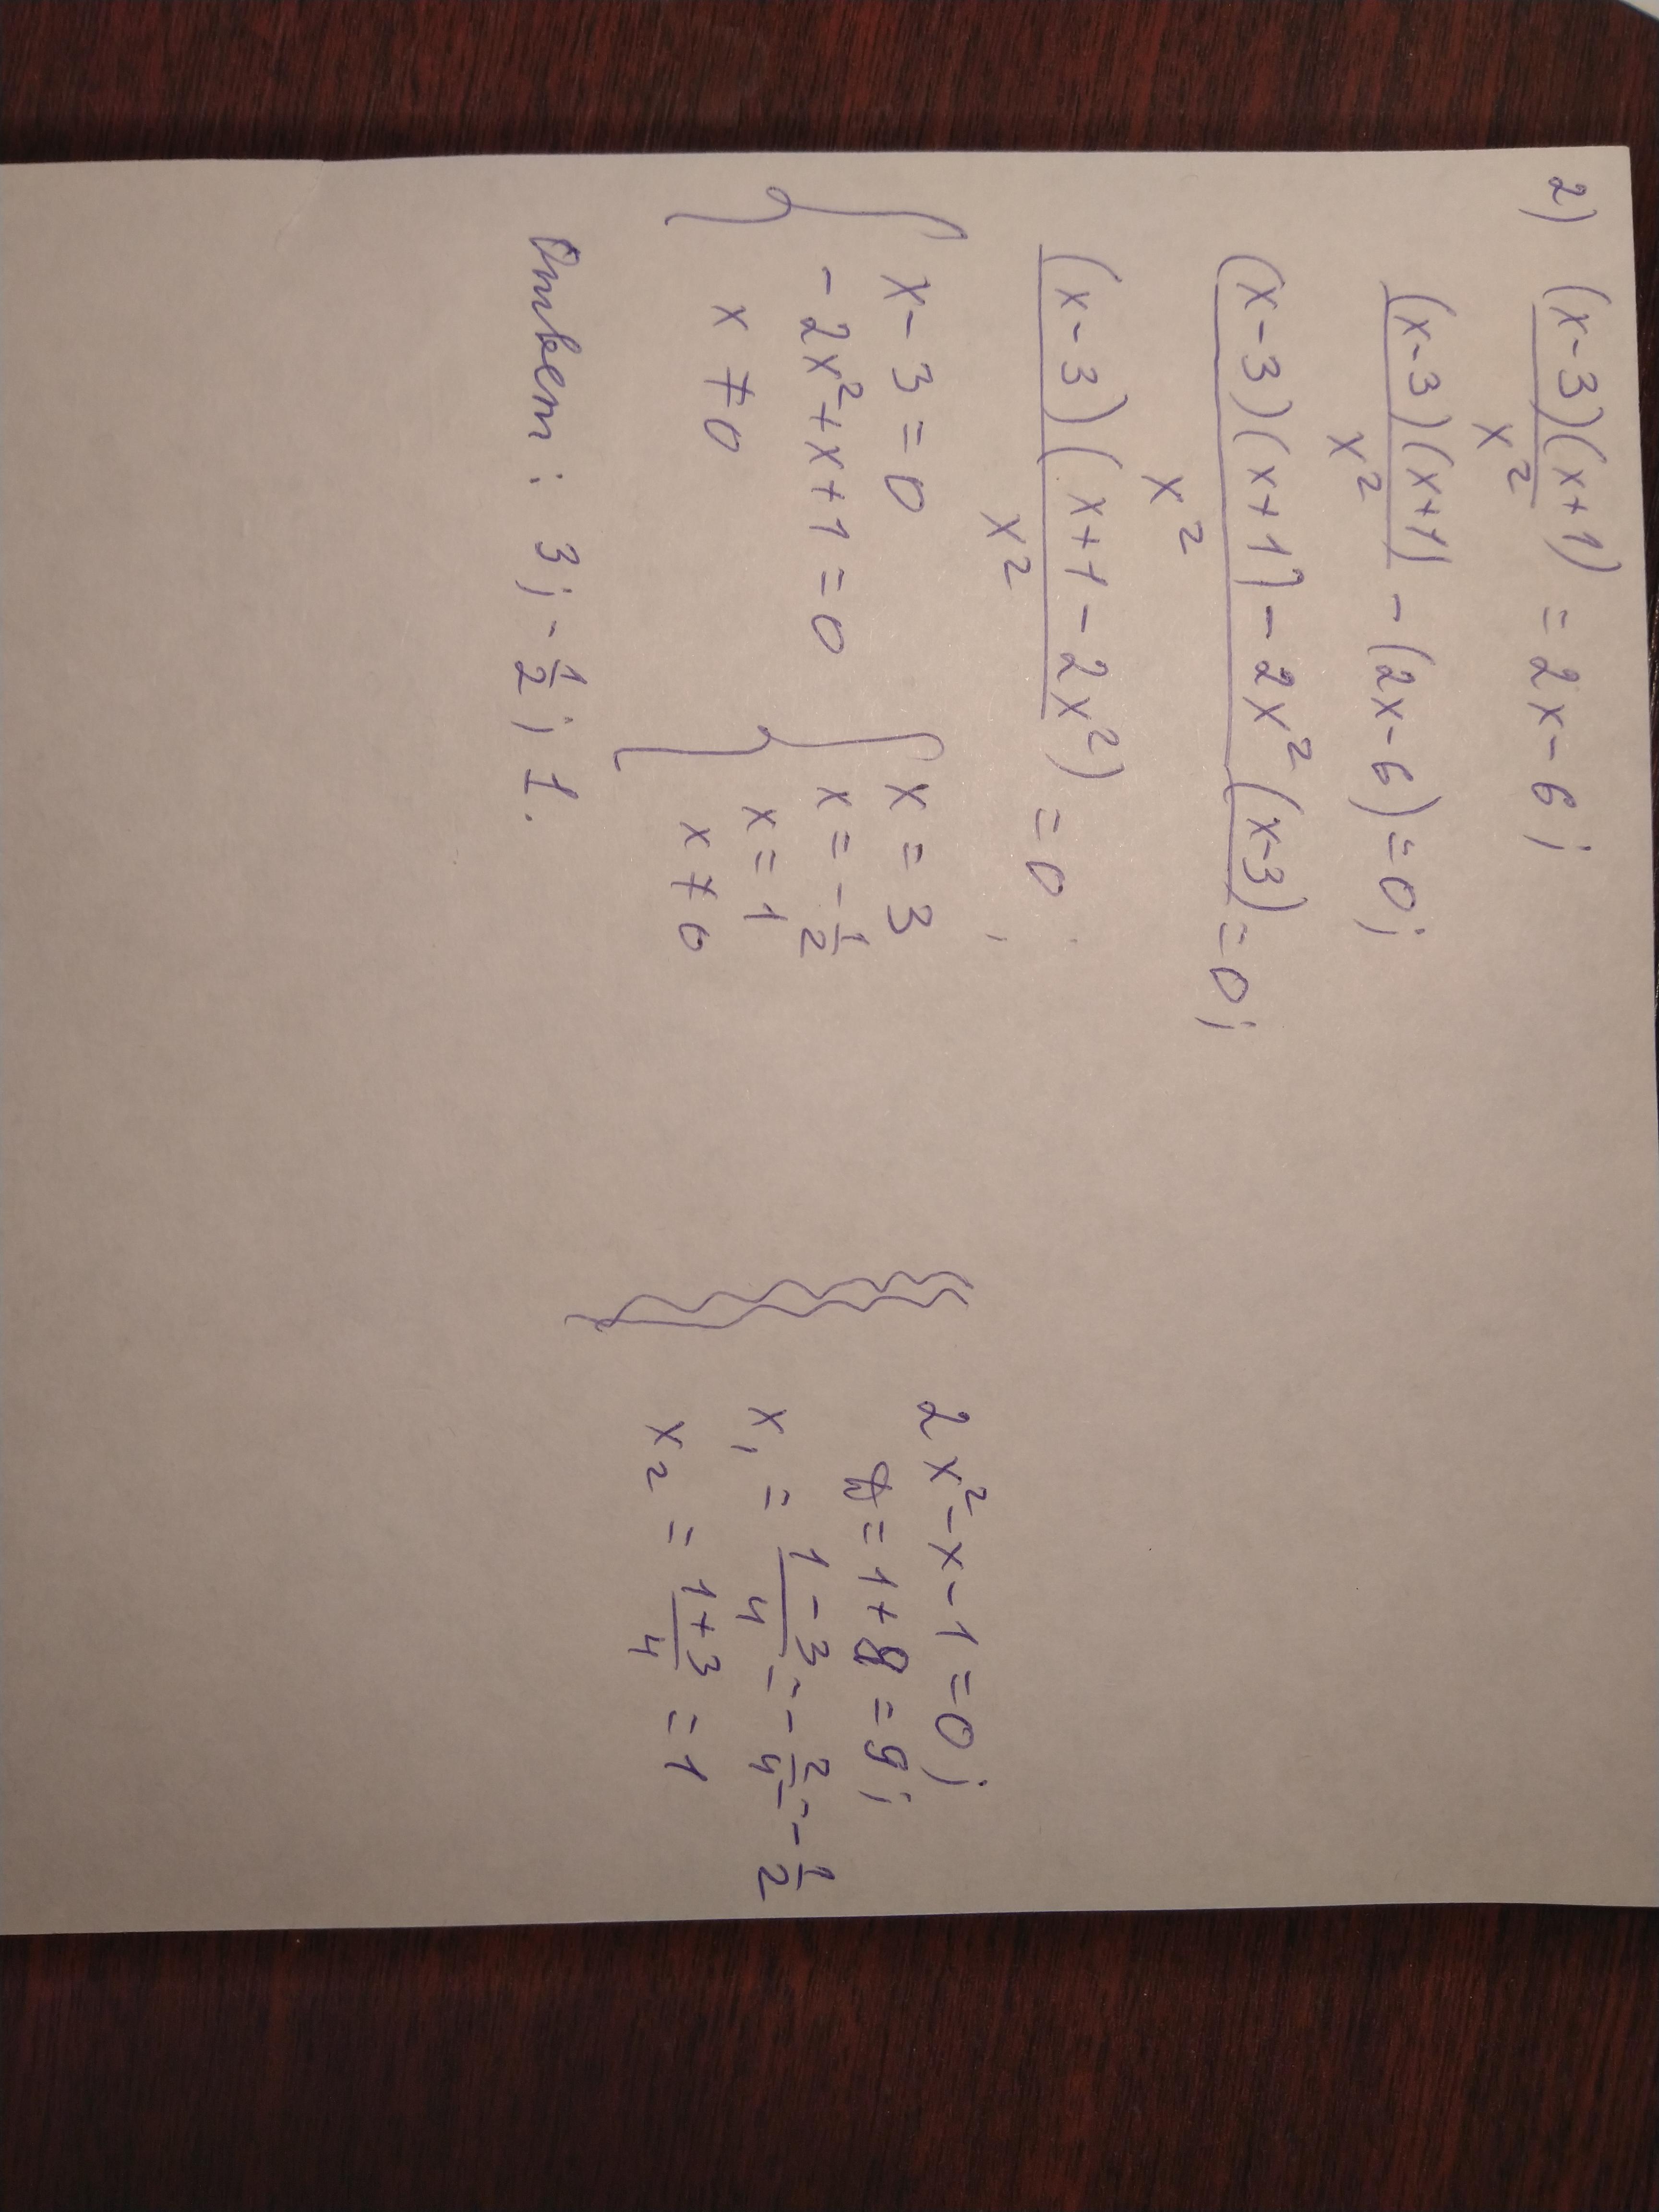 2) (x-3)(x+1)/x² = 2x-6;
(x-3)(x+1)/x² - (2x-6)=0;
(x-3)(x+1)-2x²(x-3)/x² =0;
(x-3)(x+1-2x²)/x² =0
{ x-3=0
-2x²+x+1=0
x≠0
{ x=3
x=-1/2
x=1
x≠0
2x²-x-1=0;
D=1+8=9;
x₁ = 1-3/4 = -2/4 = -1/2
x₂ = 1+3/4 = 1
Ответ: 3; -1/2; 1.